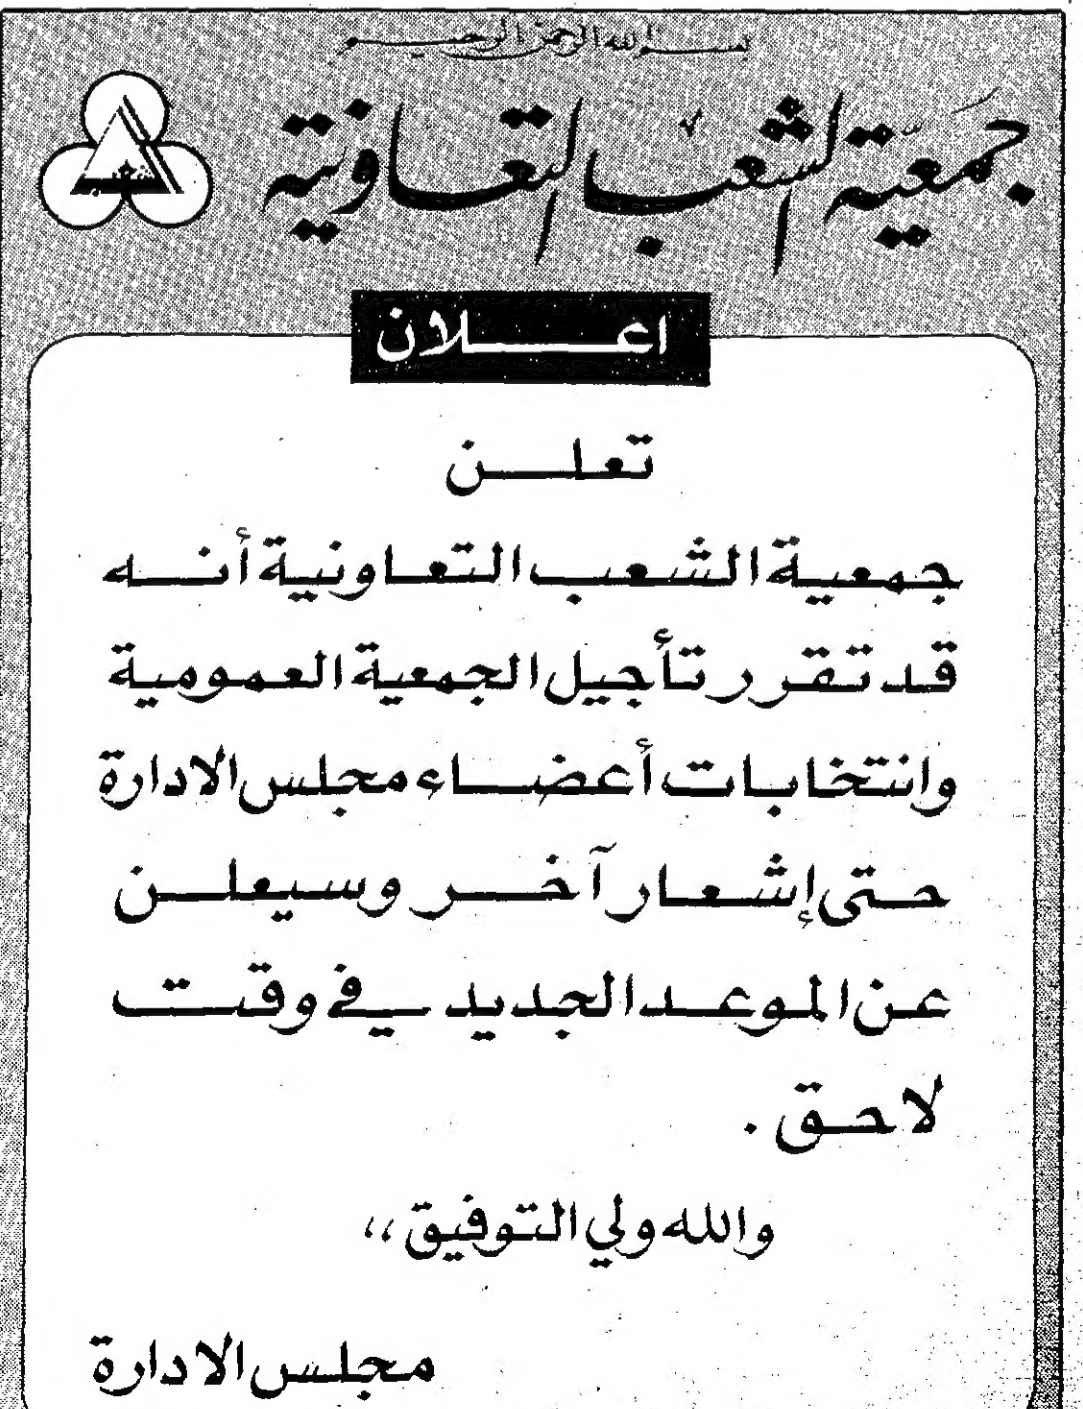 بسم الله الرحمن الرحيم
جمعية الشعب التعاونية
الشعب
اعــــلان
تعلــن
جمعيـة الشعب التعاونية أنـه
قد تقرر تأجيل الجمعية العمومية
وانتخابات أعضـاء مجلس الادارة
حتى إشعار آخـر وسيعلـن
عن الموعـد الجديد في وقـت
لاحق .
والله ولي التوفيق ،،
مجلس الادارة